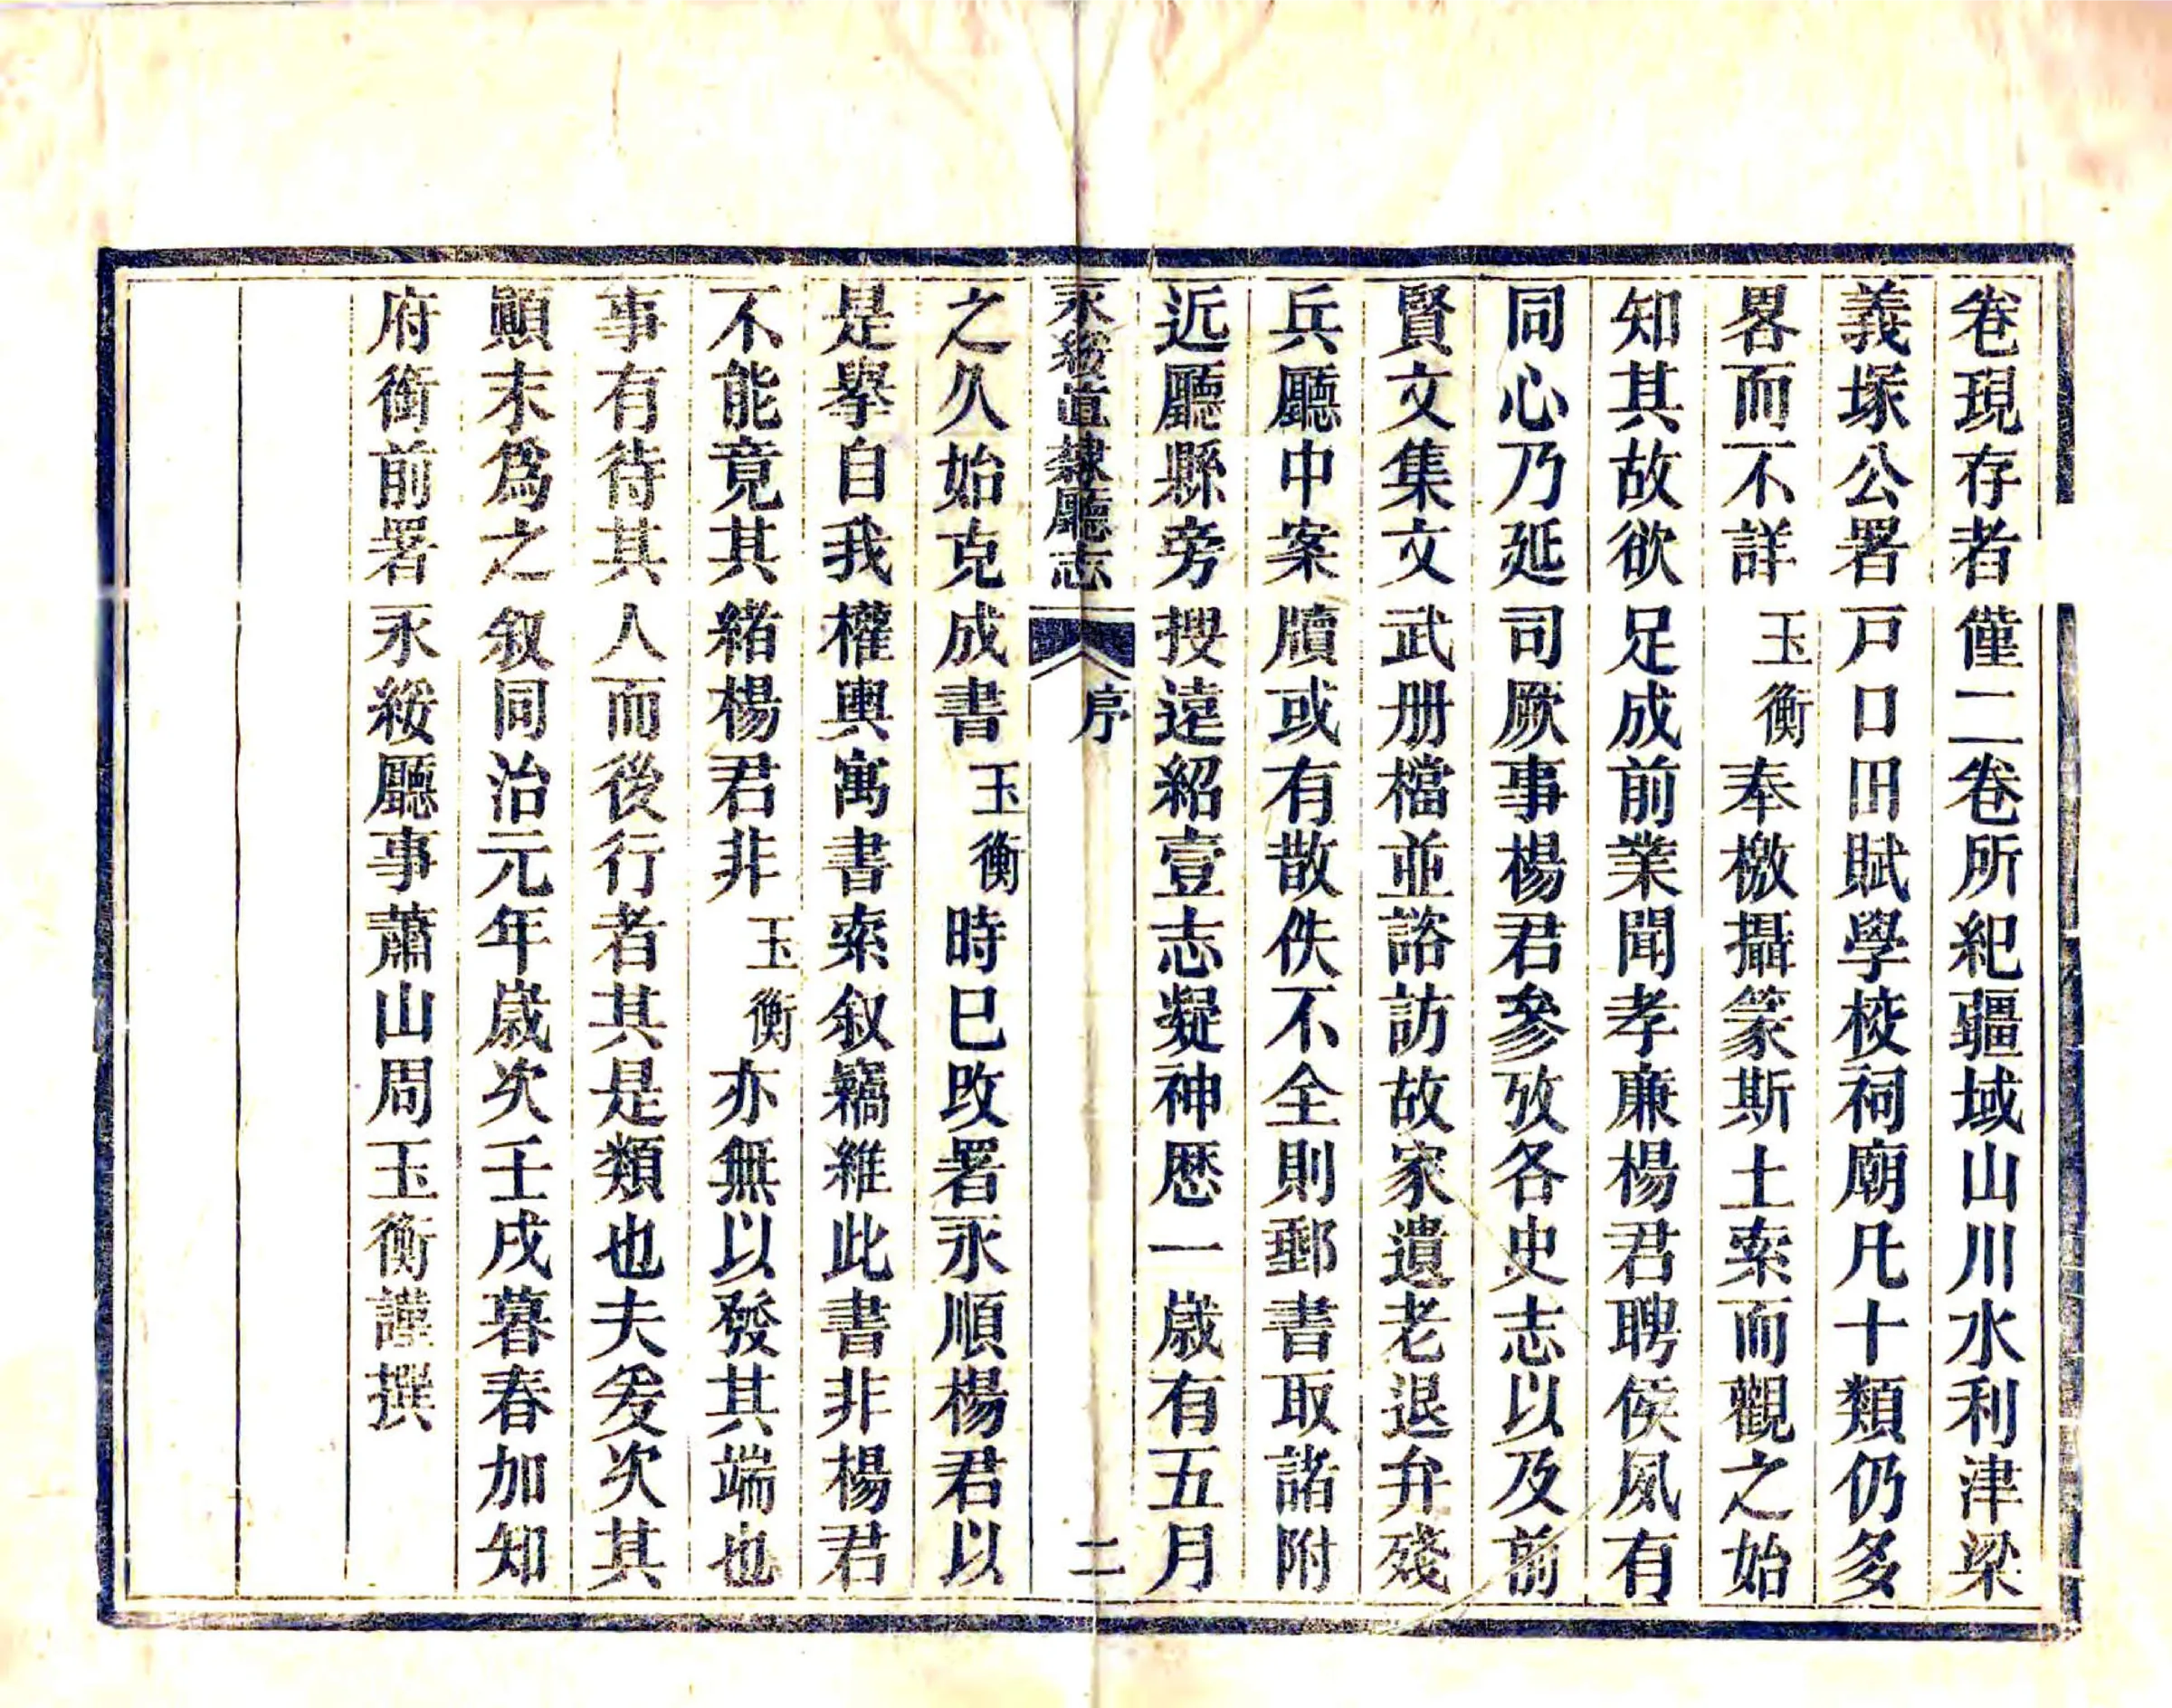 卷現存者僅二卷所紀疆域山川水利津梁
義塚公署戸口田賦學校祠廟凡十類仍多
畧而不詳玉衡奉檄攝篆斯土索而觀之始
知其故欲足成前業聞孝廉楊君聘侯夙有
同心乃延司厥事楊君參攷各史志以及前
賢文集文武册檔並諮訪故家遺老退弁殘
兵廳中案牘或有散佚不全則郵書取諸附
近廳縣旁搜遠紹壹志凝神歴一嵗有五月
永綏直隸廳志 序 二
之久始克成書玉衡時已改署永順楊君以
是舉自我權輿寓書索叙竊維此書非楊君
不能竟其緒楊君非玉衡亦無以發其端也
事有待其人而後行者其是類也夫爰次其
顚末爲之叙同治元年嵗次壬戌暮春加知
府銜前署永綏廳事蕭山周玉衡謹撰